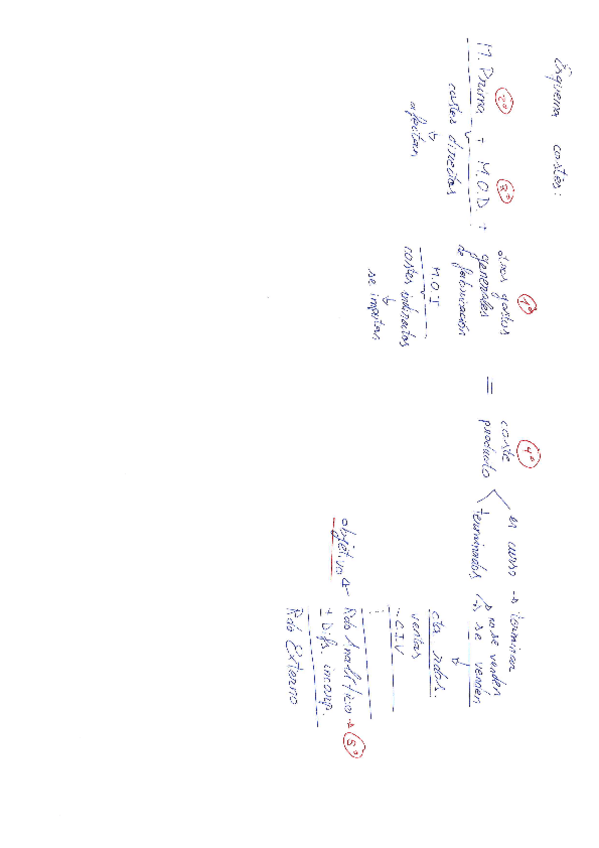 Esquema costes:
2º 3º 1º 4º
M. Prima + M.O.D. + otros gastos generales de fabricación = coste producto
costes directos
afectan
M.O.I
costes indirectos
se imputan
en curso → terminan
terminados
no se venden
se venden
cta rdos.
ventas
- C.I.V
objetivo ← Rdo Analítico → 5º
+ Difs. incorp.
Rdo Externo